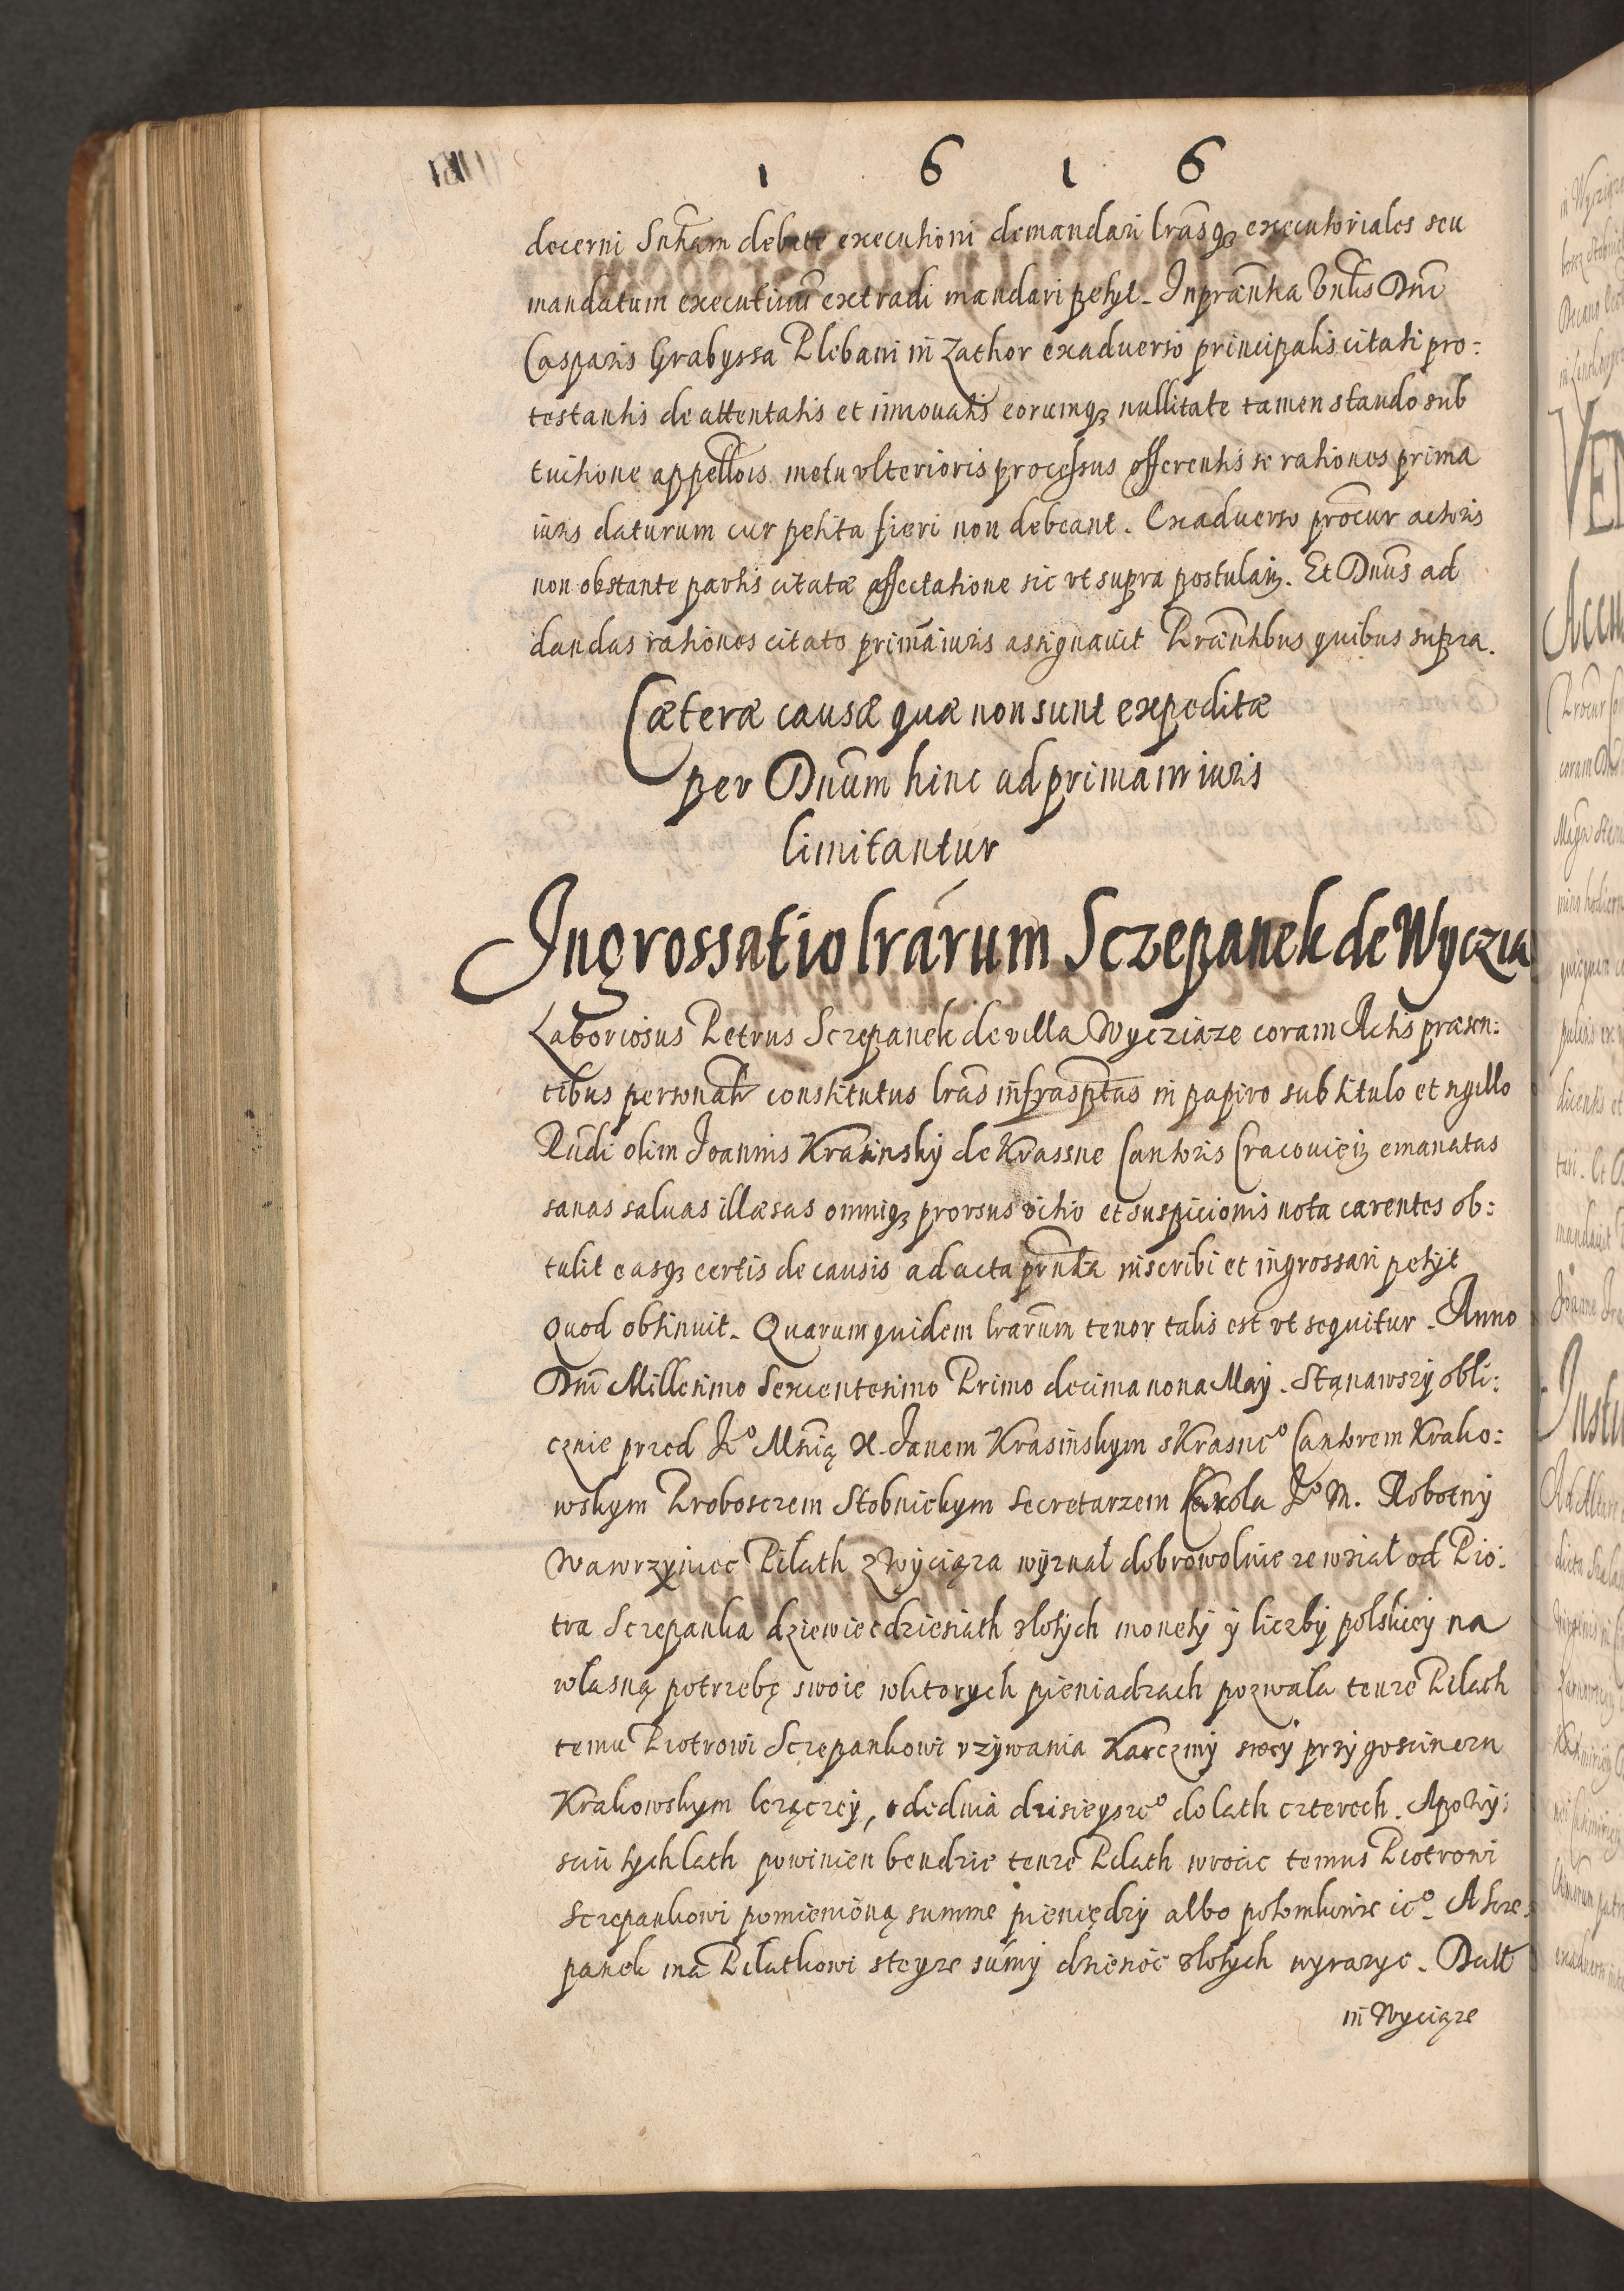 1 6 1 6
decerni Sntiam debite executioni demandari lrasq₃ executoriales seu
mandatum executiuū extradi mandari petijt. In prāntia Vnlis Dni
Casparis Grabyssa Plebani in Zathor exaduerso principalis citati pro:
testantis de attentatis et innouatis eorumq₃ nullitate tamen stando sub
tuitione appellōis metu vlterioris processus offerentis se rationes prima
iuris daturum cur petita fieri non debeant. Exaduerso procur actoris
non obstante partis citatæ affectatione sic vt supra postulañ. Et Dnus ad
dandas rationes citato primā iuris assignauit Præntibus quibus supra.
Cæteræ causæ quæ non sunt expeditæ
per Dnum hinc ad primam iuris
limitantur
Ingrossatio lrarum Sczepanek de Wyczia
Laboriosus Petrus Sczepanek de villa Wycziaze coram Actis præsen:
tibus personalr constitutus lras infrasptas in papiro sub titulo et sigillo
Rndi olim Joannis Krasinsky de Krassne Cantoris Cracouieñ emanatas
sanas saluas illæsas omniq₃ prorsus vitio et suspicionis nota carentes ob:
tulit easq₃ certis de causis ad acta prnta inscribi et ingrossari petijt
Quod obtinuit. Quarum quidem lrarum tenor talis est vt sequitur. Anno
Dni Millesimo Sexcentesimo Primo decima nona Maij. Stąnawszy obli:
cznie przed Jᵒ Mścią X. Janem Krasinskym s Krasneᵒ Cantorem Krako:
wskym Proboszczem Stobnickym Secretarzem Karola Jᵒ M. Robotny
Wawrzyniec Piłath z Wyciąza wyznał dobrowolnie ze wziął od Pio:
tra Sczepanka dziewiecdziesiath złotych monety y liczby polskiey na
własną potrzebę swoie wktorych pieniadzach pozwala tenze Piłath
temu Piotrowi Sczepankowi vzywania Karczmy swey przy goscincu
Krakowskym lezączey, odednia dzisieyszeᵒ do lath czterech. A po wy:
sciu tych lath powinien bendzie tenze Piłath wrocic temus Piotrowi
Sczepankowi pomienioną summe pieniędzy albo potomkowie ieᵒ. A Scze:
panek ma Piłathowi steyze summy dziesiec złotych wyrazyc. Datt
in Wyciąze